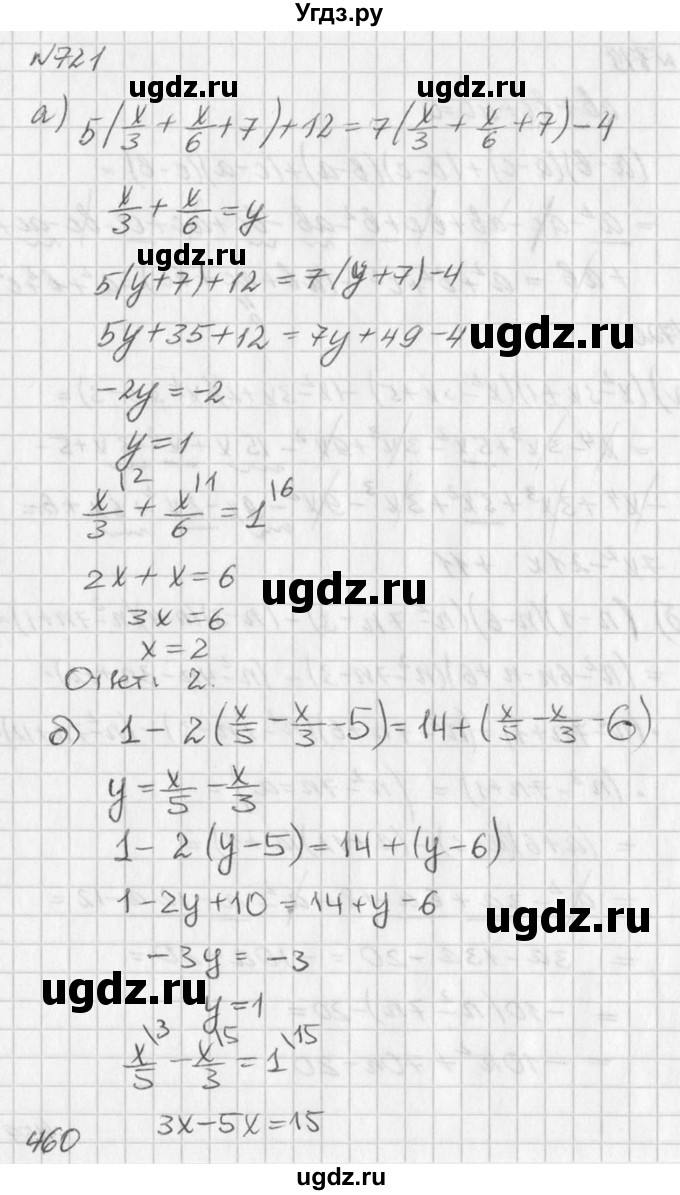 Угдз.ру
№721
ugdz.ru ugdz.ru
а) 5(x/3 + x/6 + 7) + 12 = 7(x/3 + x/6 + 7) - 4
x/3 + x/6 = y
ugdz.ru
5(y+7)+12 = 7(y+7)-4
5y+35+12 = 7y+49-4
ugdz.ru
-2y = -2
ugdz.ru
y = 1
x/3 \2 + x/6 \1 = 1 \6
2x + x = 6
ugdz.ru
3x = 6
x = 2
Ответ: 2.
ugdz.ru
б) 1 - 2(x/5 - x/3 - 5) = 14 + (x/5 - x/3 - 6)
y = x/5 - x/3
ugdz.ru
1 - 2(y-5) = 14 + (y-6)
1 - 2y + 10 = 14 + y - 6
ugdz.ru
-3y = -3
ugdz.ru
y = 1
x/5 \3 - x/3 \5 = 1 \15
ugdz.ru
3x - 5x = 15
460
ugdz.ru